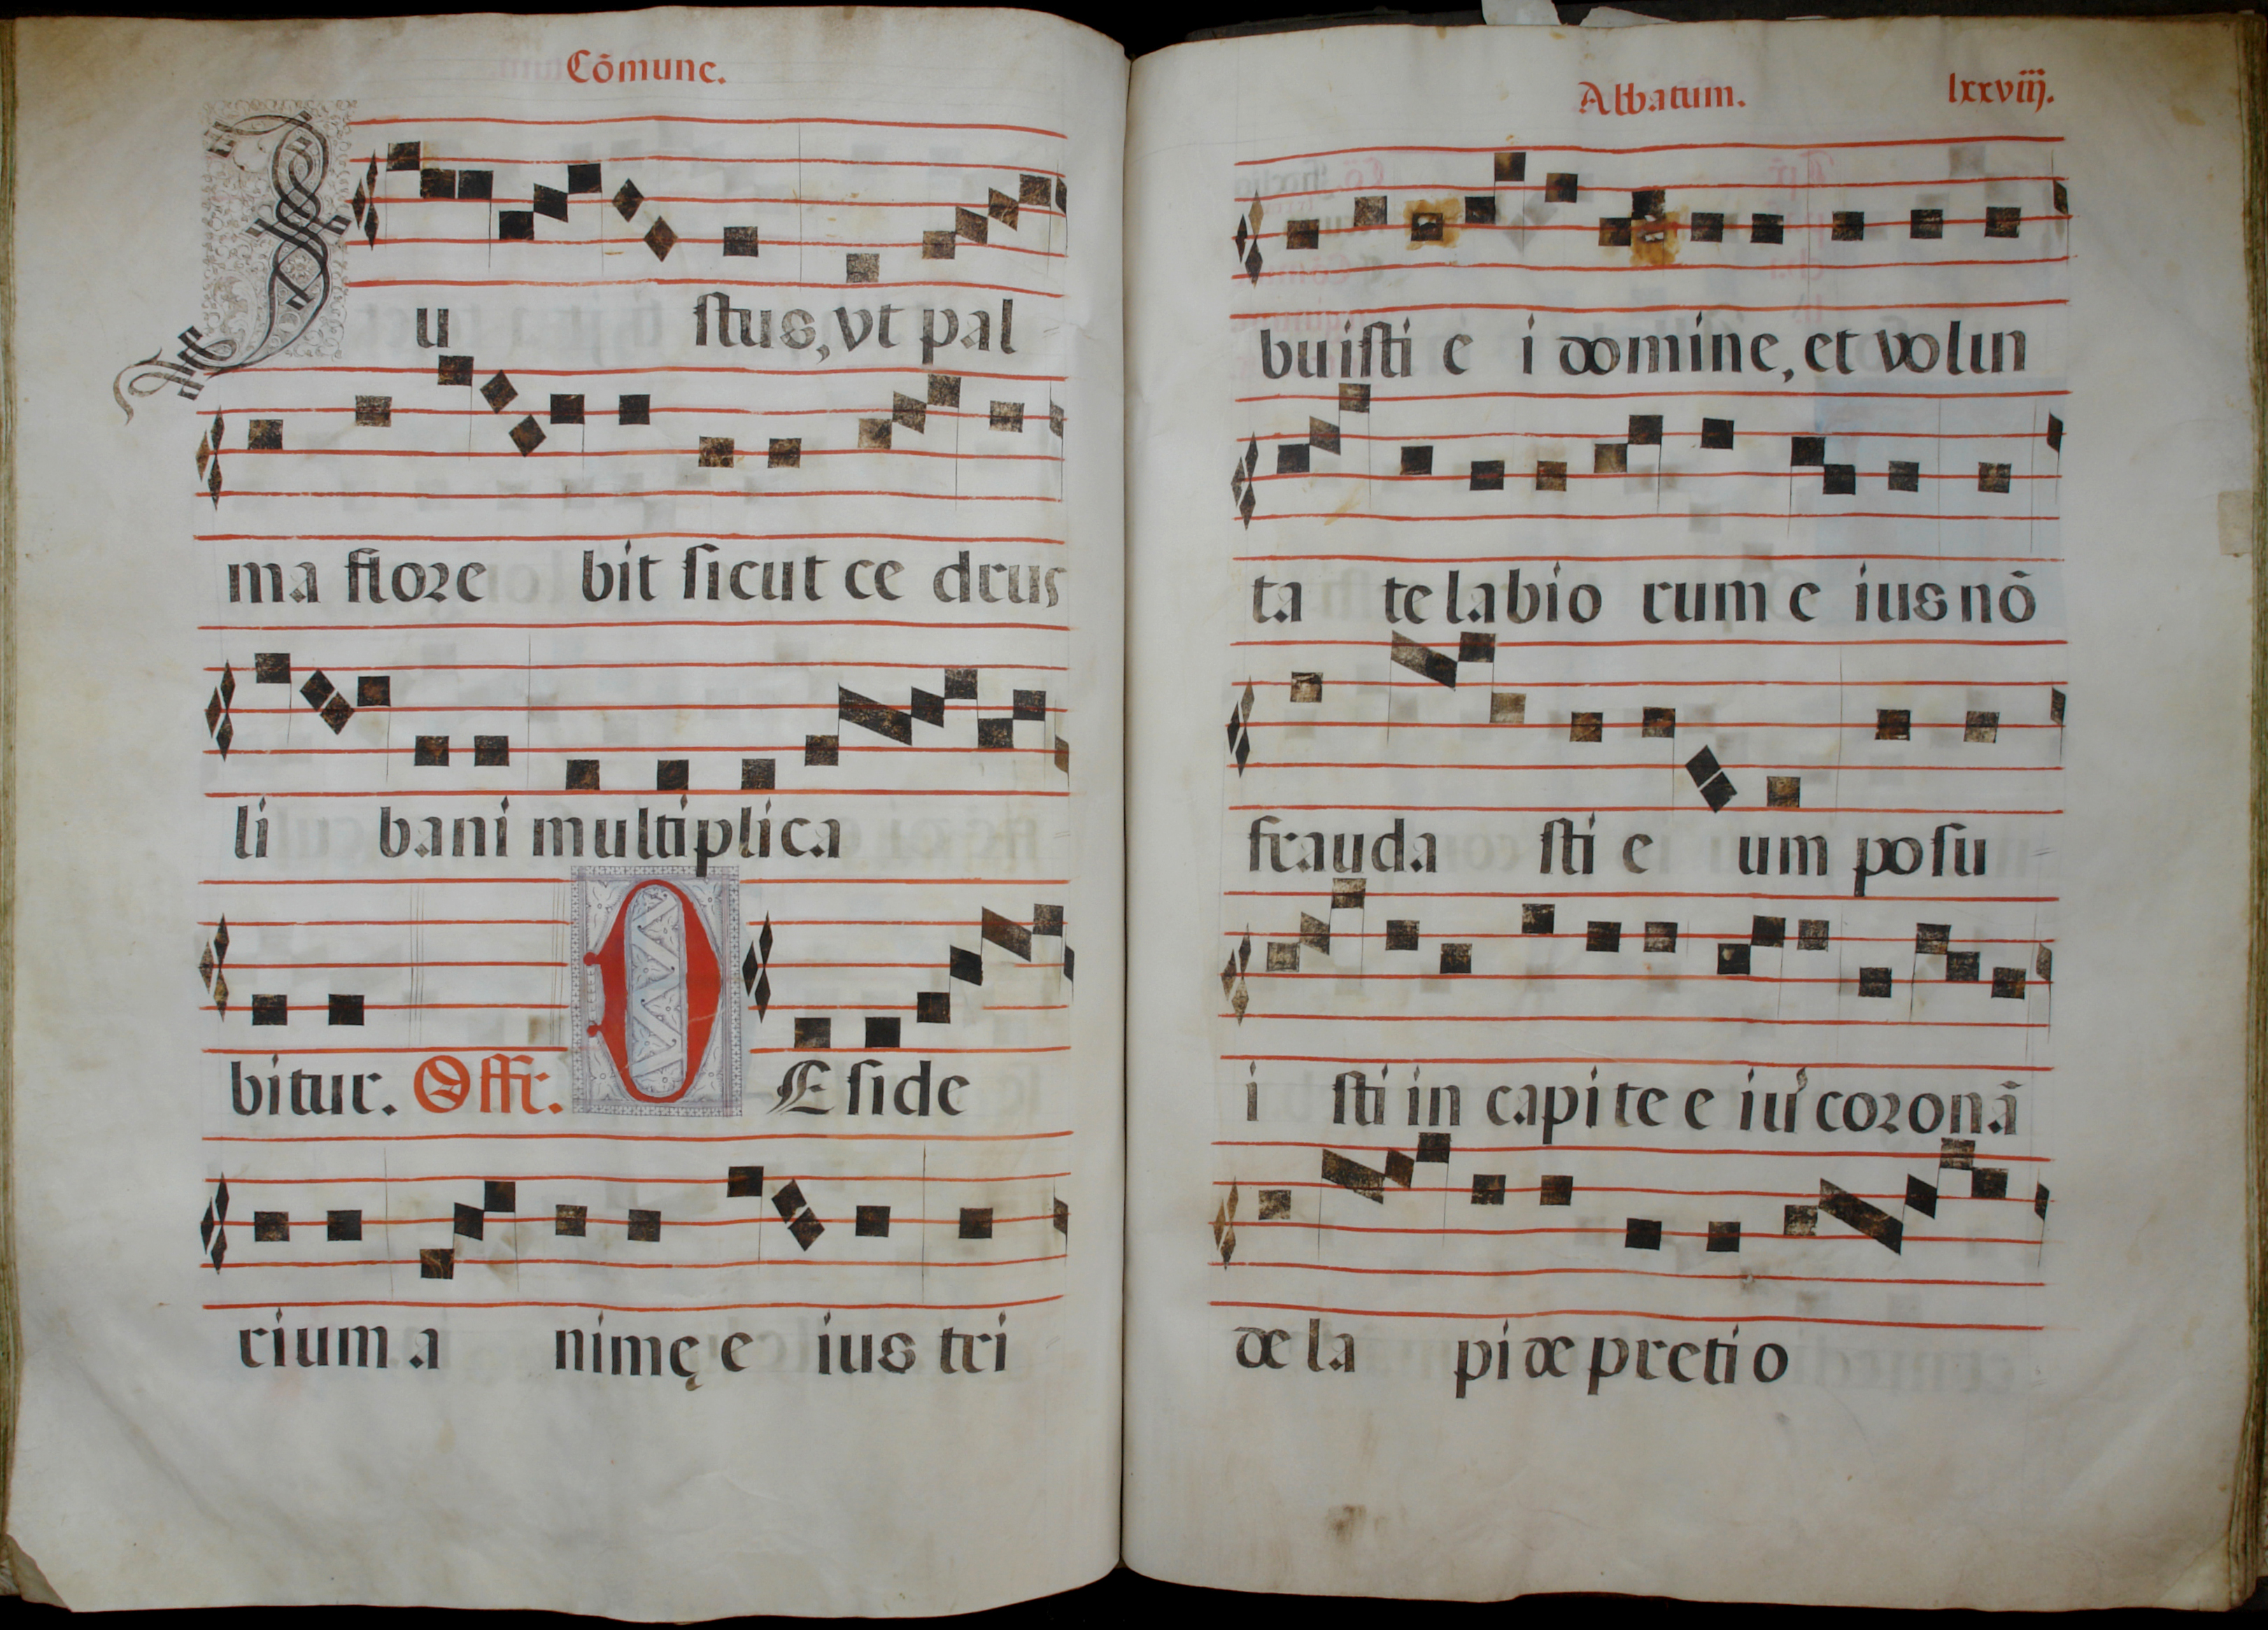 Cõmune.
Iu stus, vt pal
ma flore bit sicut ce drus
li bani multiplica
bitur. Offr. DE side
rium a nimę e ius tri
Abbatum. lxxviij.
buisti e i domine, et volun
ta te labio rum e ius nõ
frauda sti e um posu
i sti in capite e iu' coronã
de la pide pretio